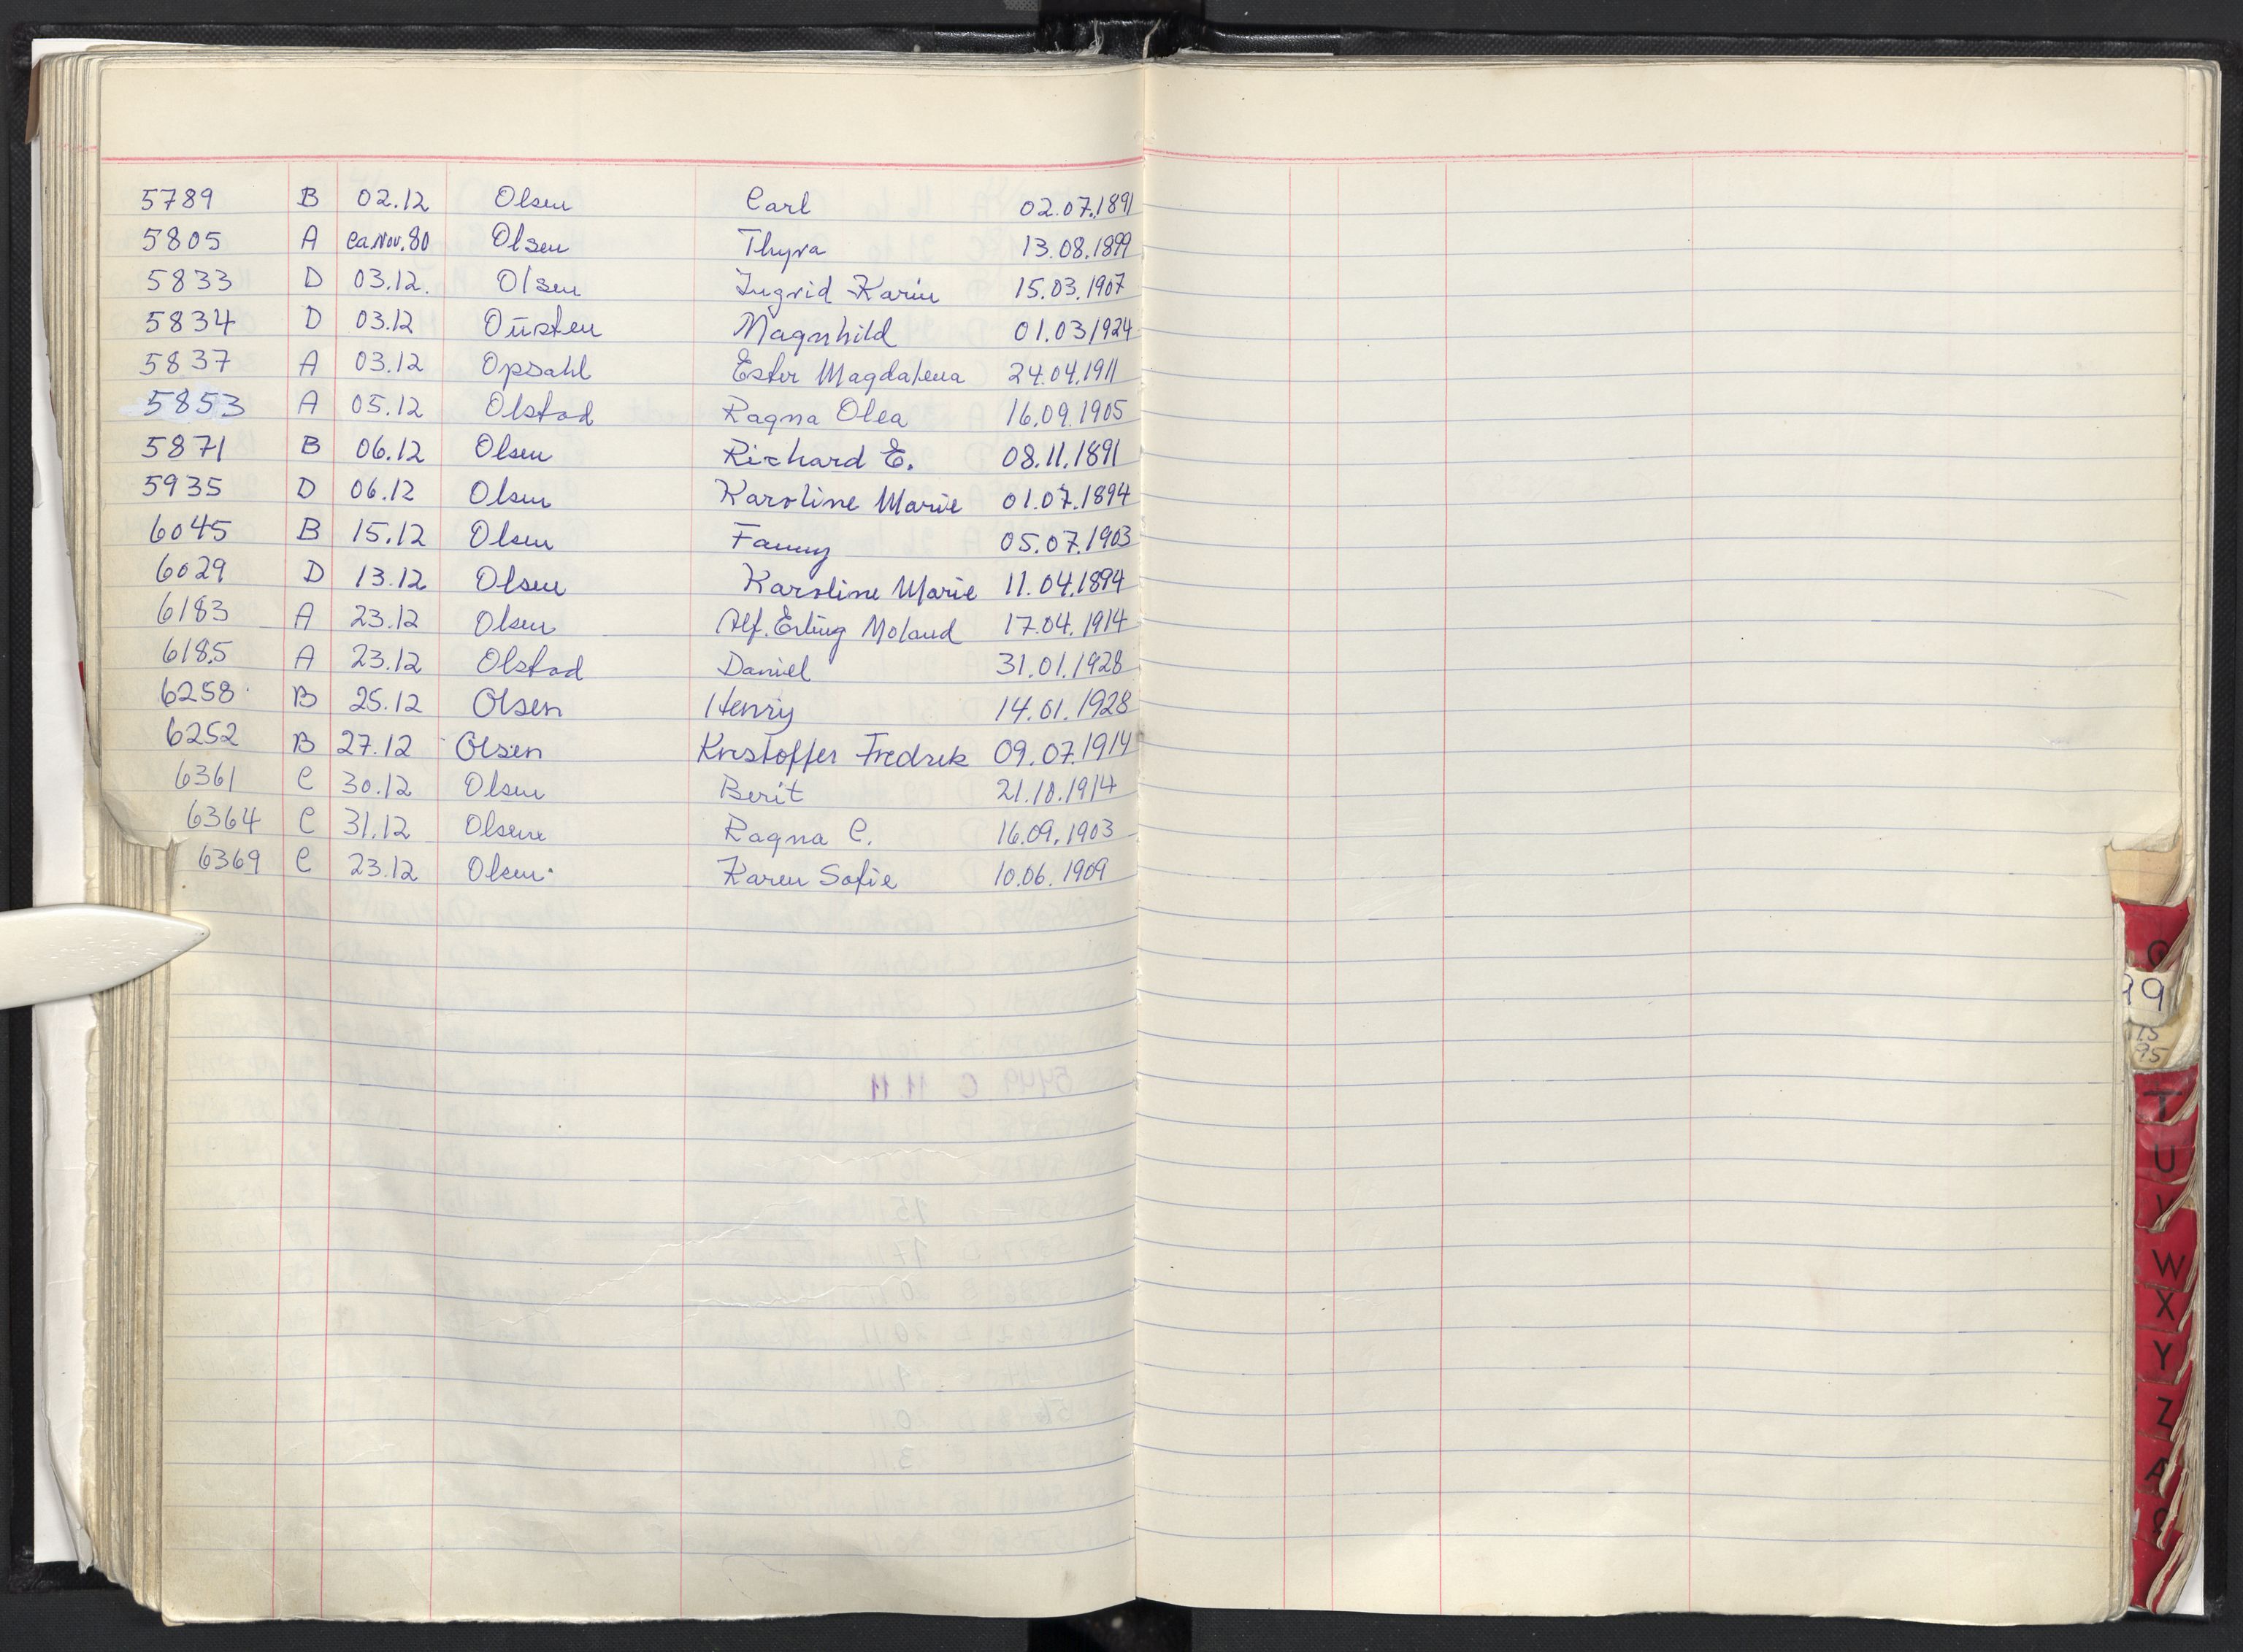 5789 B 02.12 Olsen Carl 02.07.1891
5805 A ca.Nov.80 Olsen Thyra 13.08.1899
5833 D 03.12. Olsen Ingrid Karin 15.03.1907
5834 D 03.12 Ousten Magnhild 01.03.1924
5837 A 03.12 Opsahl Ester Magdalena 24.04.1911
5853 A 05.12 Olstad Ragna Olea 16.09.1905
5871 B 06.12 Olsen Richard E. 08.11.1891
5935 D 06.12 Olsen Karoline Marie 01.07.1894
6045 B 15.12 Olsen Fanny 05.07.1903
6029 D 13.12 Olsen Karoline Marie 11.04.1894
6183 A 23.12 Olsen Alf. Erling Moland 17.04.1914
6185 A 23.12 Olstad Daniel 31.01.1928
6258 B 25.12 Olsen Henry 14.01.1928
6252 B 27.12 Olsen Kristoffer Fredrik 09.07.1914
6361 C 30.12 Olsen Berit 21.10.1914
6364 C 31.12 Olsen Ragna C. 16.09.1903
6369 C 23.12 Olsen Karen Sofie 10.06.1909
T
U
V
W
X
Y
Z